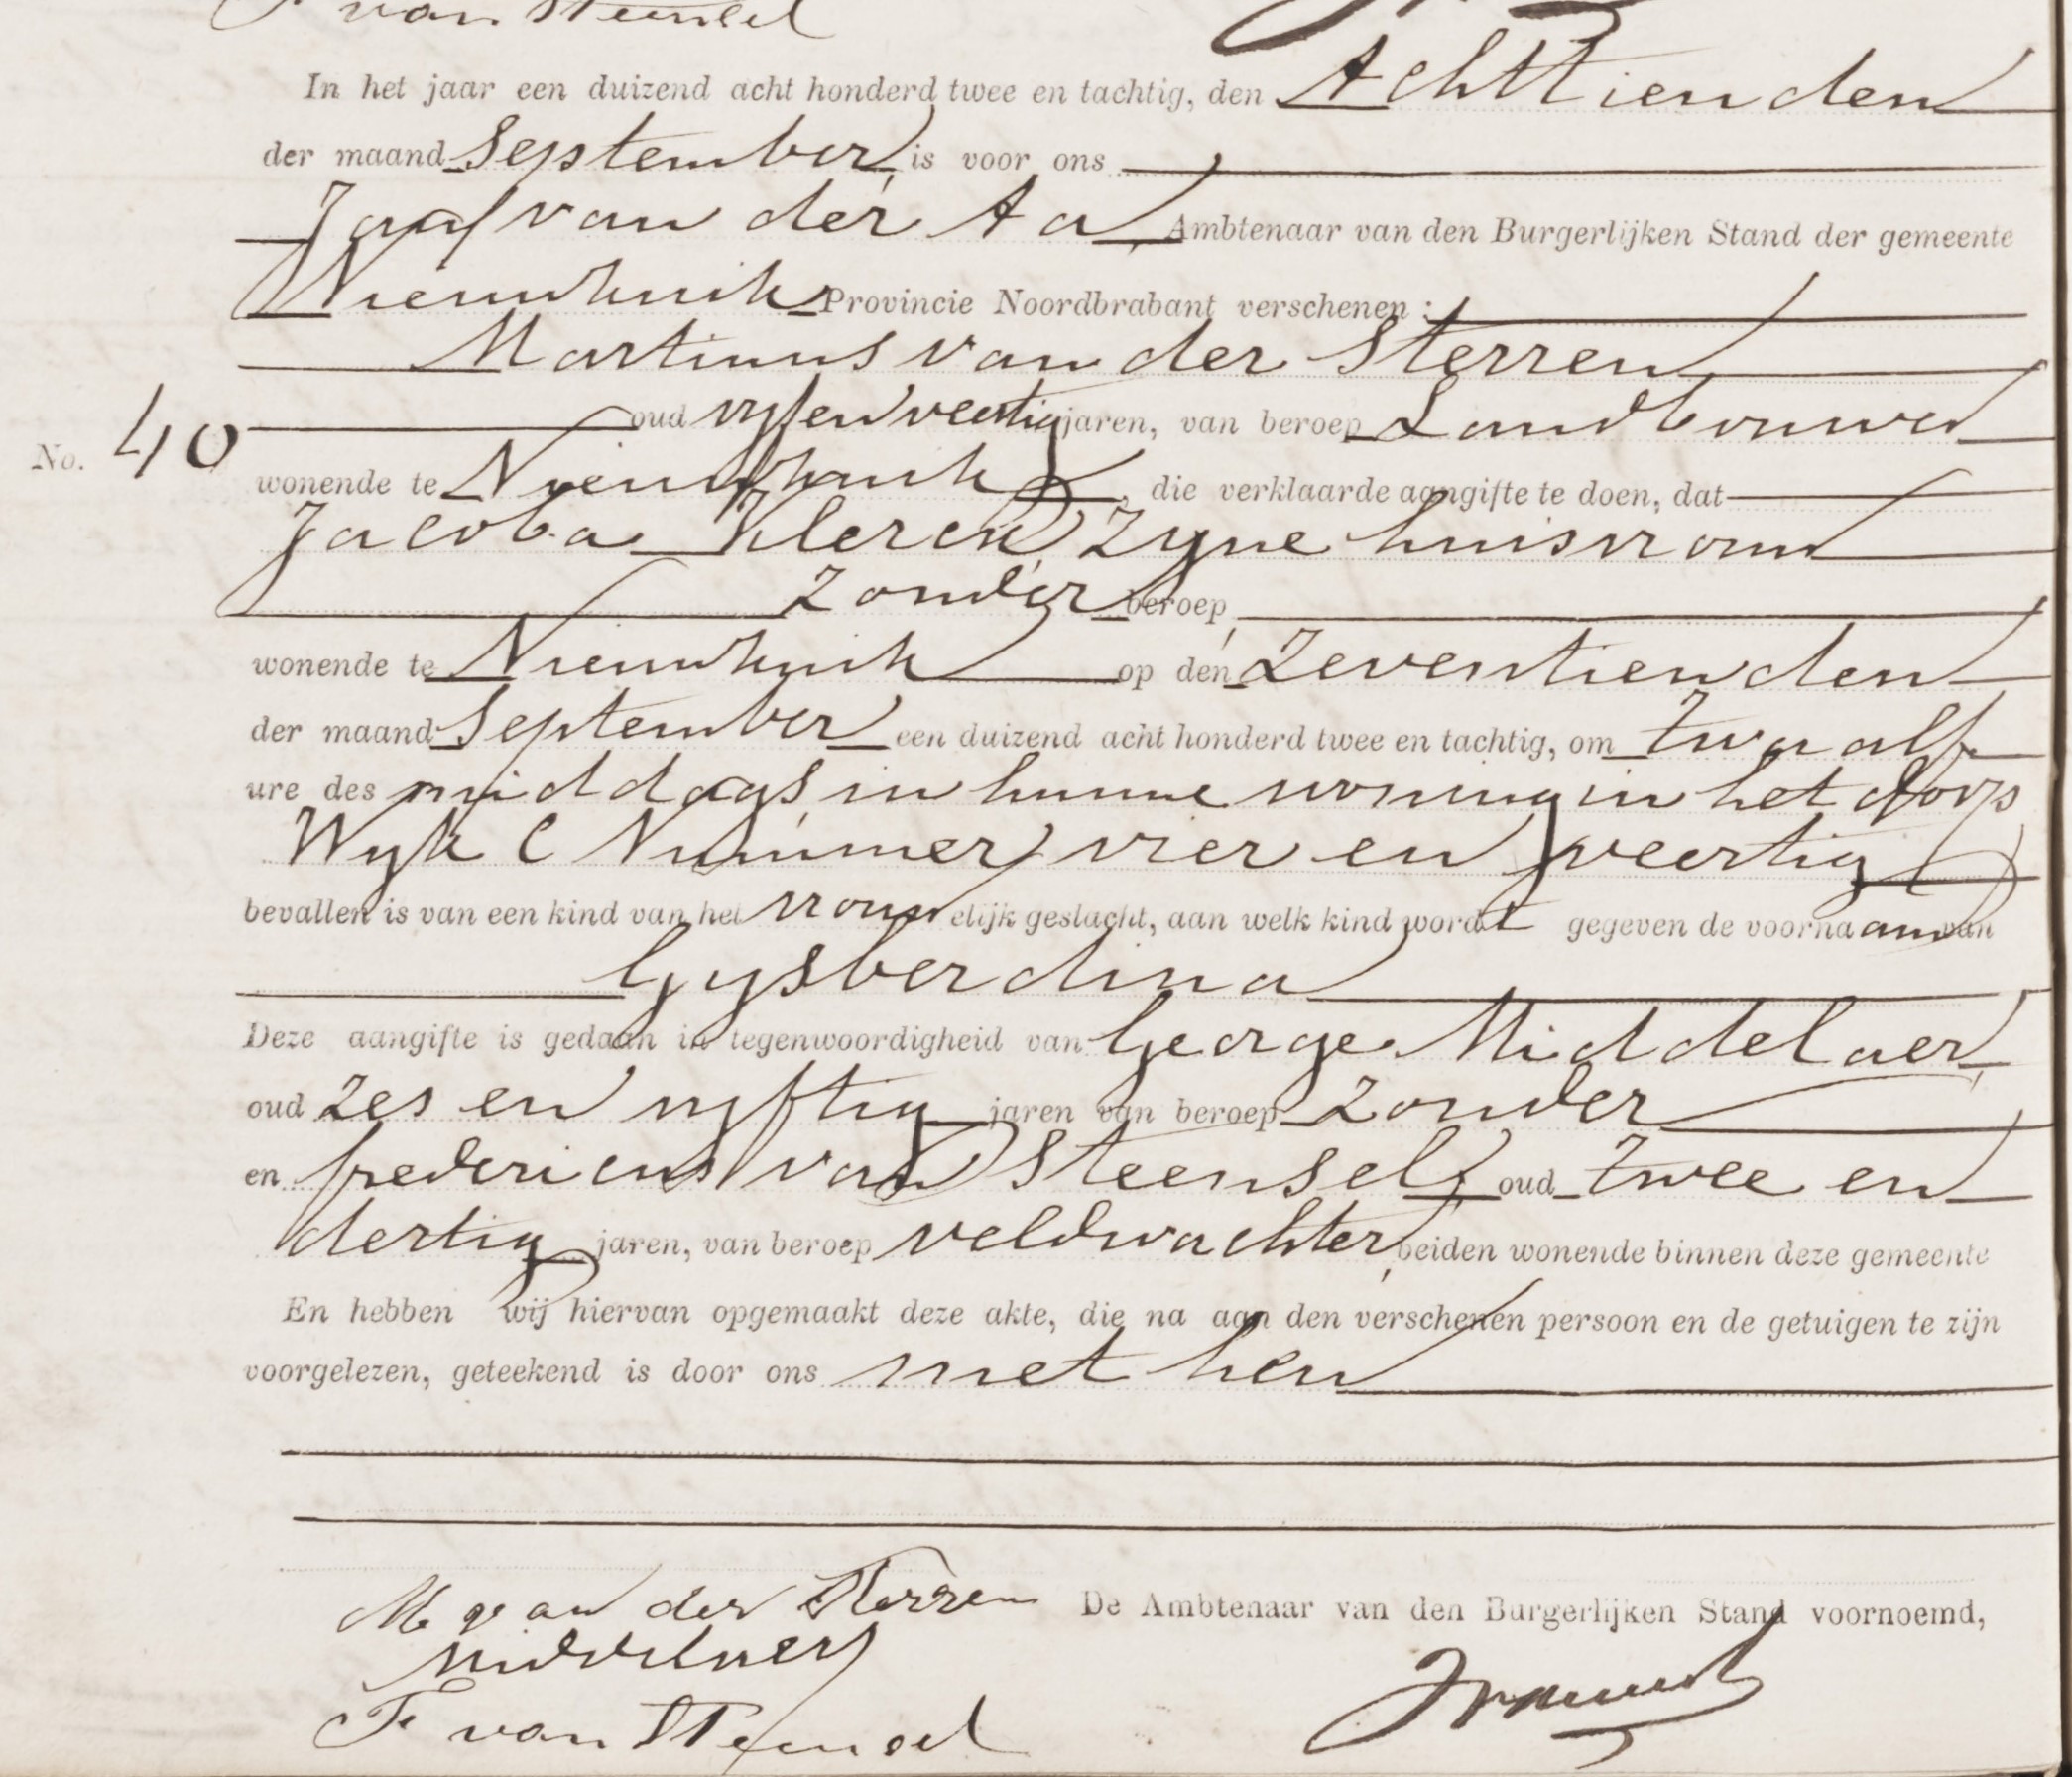 F van Steensel
In het jaar een duizend acht honderd twee en tachtig, den Achttienden
der maand September is voor ons
Jan van der Aa Ambtenaar van den Burgerlijken Stand der gemeente
Nieuwkuik Provincie Noordbrabant verschenen :
Martinus van der Sterren
oud vyf en veertig jaren, van beroep Landbouwer
No. 40
wonende te Nieuwkuik, die verklaarde aangifte te doen, dat
Jacoba Klerck zyne huisvrouw
zonder beroep
wonende te Nieuwkuik op den Zeventienden
der maand September een duizend acht honderd twee en tachtig, om twaalf
ure des middags in hunne woning in het dorp
Wyk C Nummer vier en veertig
bevallen is van een kind van het vrouwelijk geslacht, aan welk kind wordt gegeven de voornaam van
Gysberdina
Deze aangifte is gedaan in tegenwoordigheid van George Middelaer
oud zes en vyftig jaren van beroep zonder
en fredericus van Steensel oud twee en
dertig jaren, van beroep veldwachter beiden wonende binnen deze gemeente
En hebben wij hiervan opgemaakt deze akte, die na aan den verschenen persoon en de getuigen te zijn
voorgelezen, geteekend is door ons met hen
M van der Sterren De Ambtenaar van den Burgerlijken Stand voornoemd,
Middelaer
F van Steensel